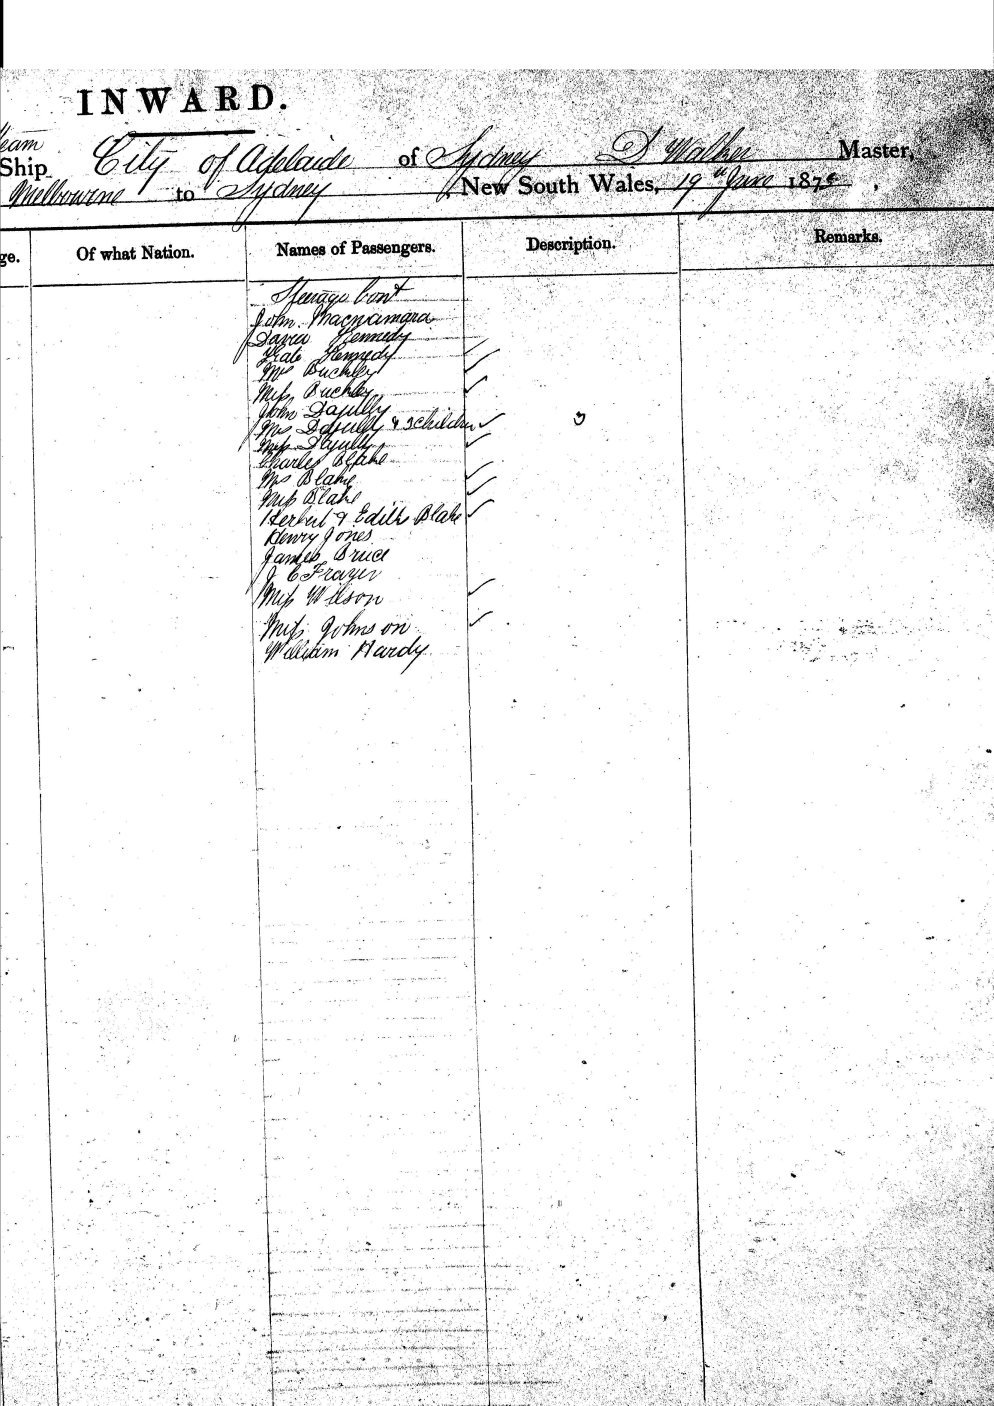 INWARD.
Ship City of Adelaide of Sydney D Walker Master,
Melbourne to Sydney New South Wales, 19th June 187
Of what Nation. Names of Passengers. Description. Remarks.
Steerage Cont
John Macnamara
David Kennedy
Kate Kennedy
Mrs Buckley
Miss Buckley
John
Mrs & 3 children ✓ 3
Miss
Charles Blake
Mrs Blake
Miss Blake
Herbert & Edith Blake
Henry Jones
James Bruce
J C Frayer
Miss Wilson
Miss Johnson
William Hardy